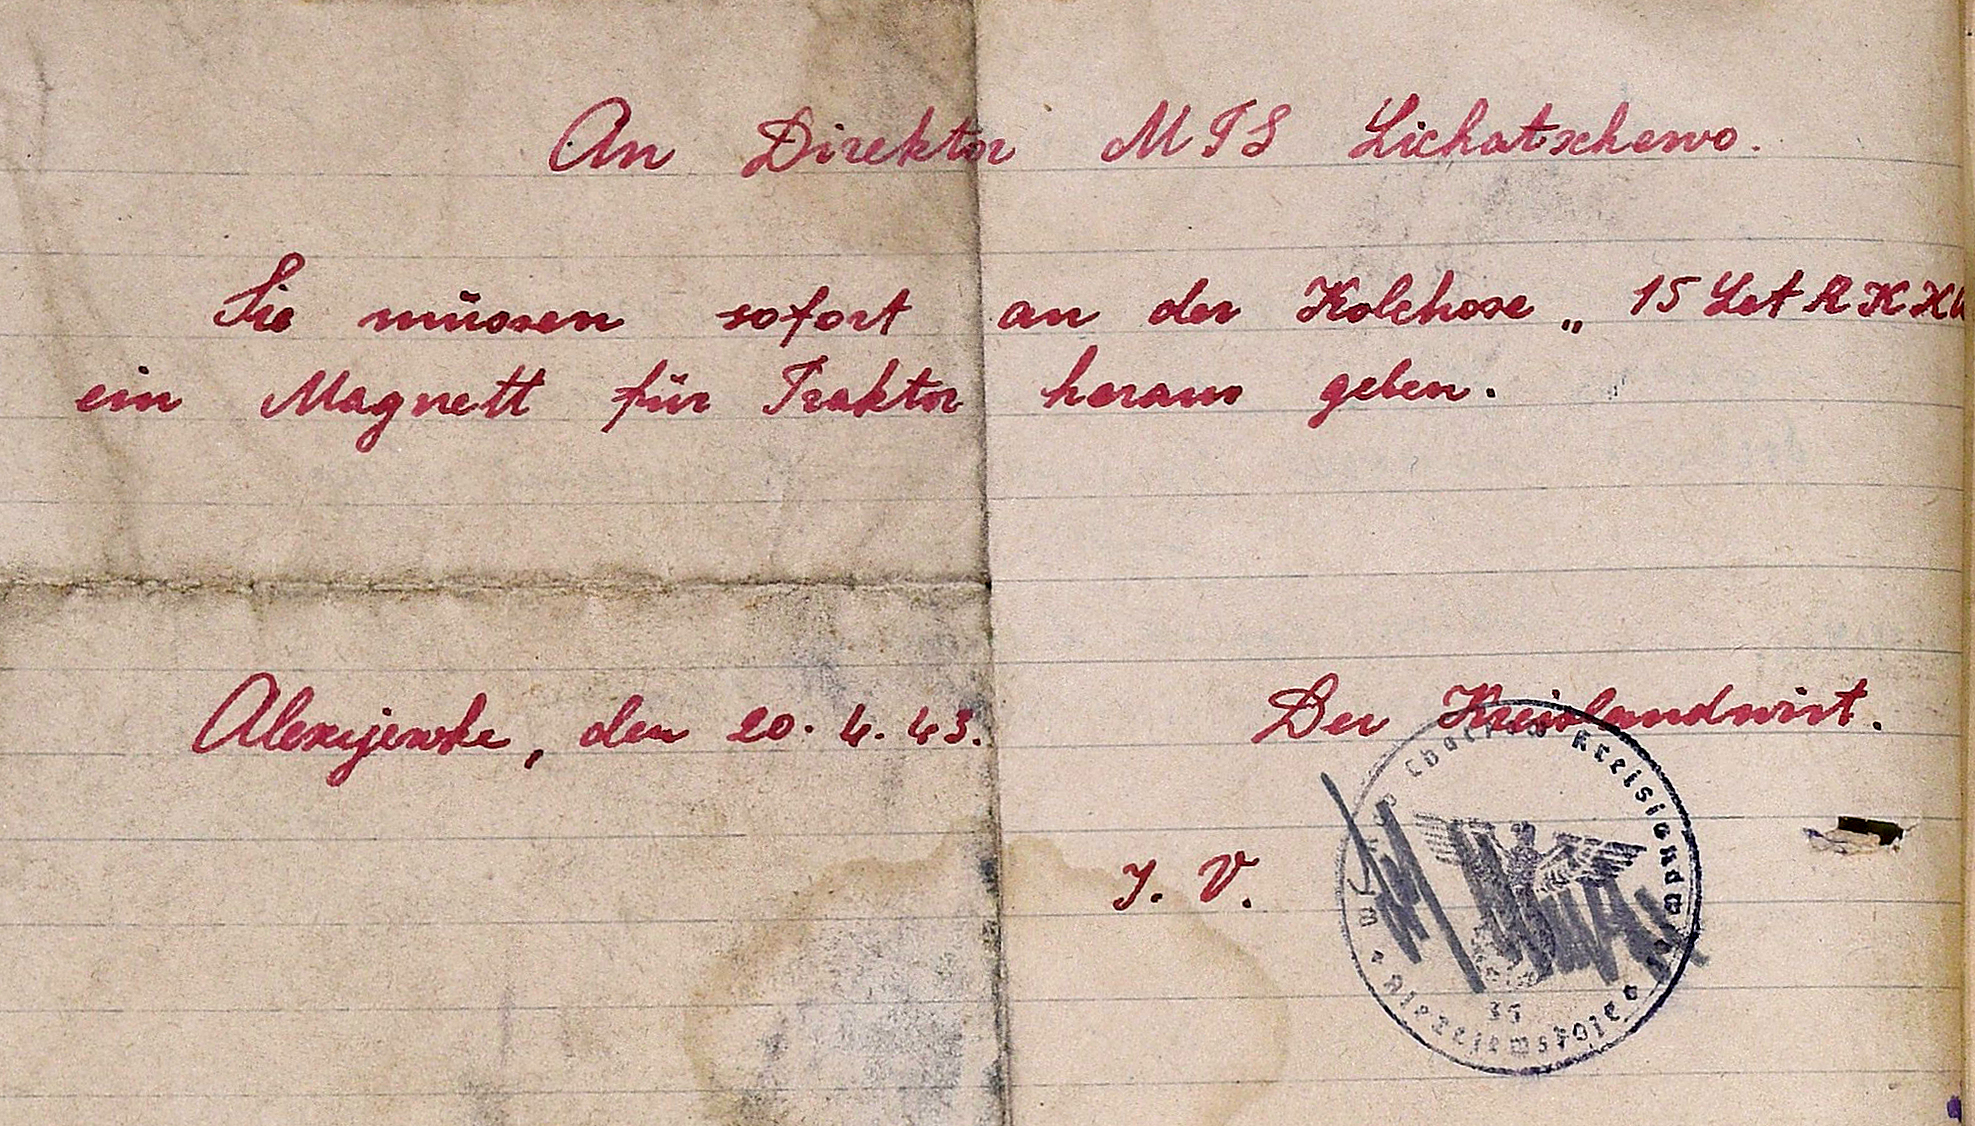 An Direktor MTS Lichatschewo.
Sie müssen sofort an der Kolchose „ 15 Let RKK
ein Magnett für Traktor heraus geben.
Alexejewke, den 20. 4. 43.
Der Kreislandwirt.
J. V.
Kreislandw
35